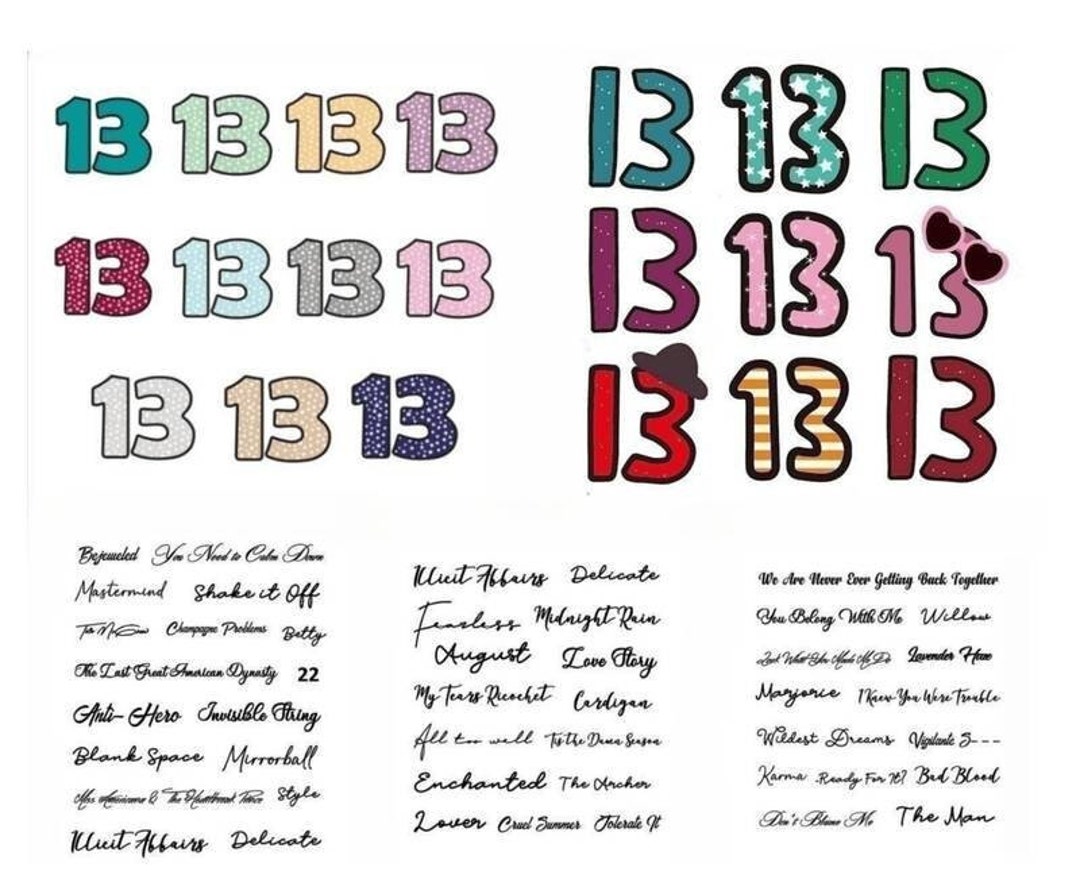 13 13 13 13
13 13 13 13
13 13 13
13 13 13
13 13 13
13 13 13
Bejeweled You Need to Calm Down
Mastermind Shake it Off
Tim McGraw Champagne Problems Betty
The Last Great American Dynasty 22
Anti-Hero Invisible String
Blank Space Mirrorball
Miss Americana & The Heartbreak Prince Style
Illicit Affairs Delicate
Illicit Affairs Delicate
Fearless Midnight Rain
August Love Story
My Tears Ricochet Cardigan
All too well Tis the Damn Season
Enchanted The Archer
Lover Cruel Summer Tolerate It
We Are Never Ever Getting Back Together
You Belong With Me Willow
Look What You Made Me Do Lavender Haze
Marjorie I Knew You Were Trouble
Wildest Dreams Vigilante S---
Karma .Ready For It? Bad Blood
Don't Blame Me The Man